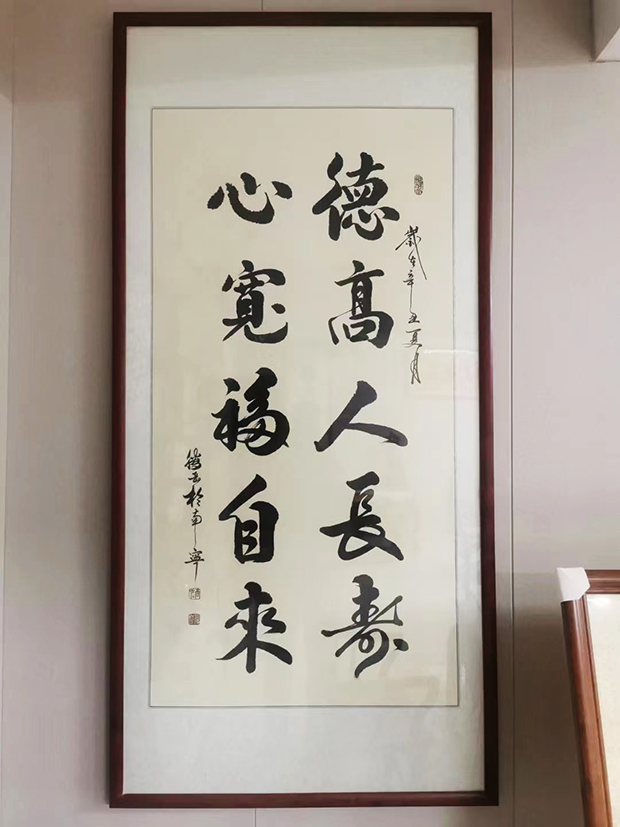 歲在辛丑夏月
德高人長壽
心寬福自來
於南寧